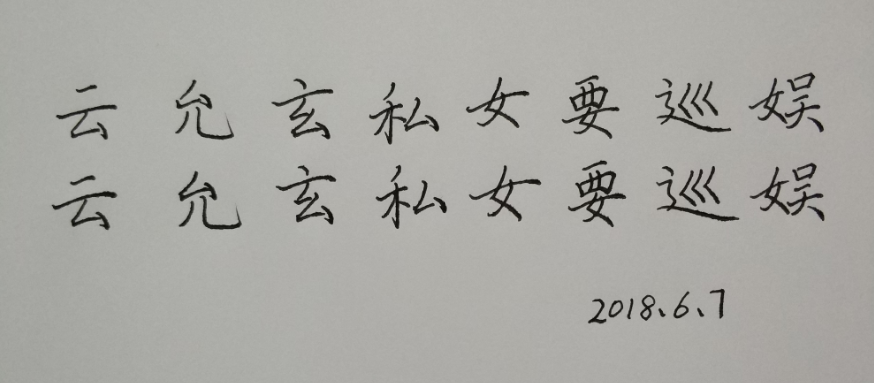 云允玄私女要巡娱
云允玄私女要巡娱
2018、6、7